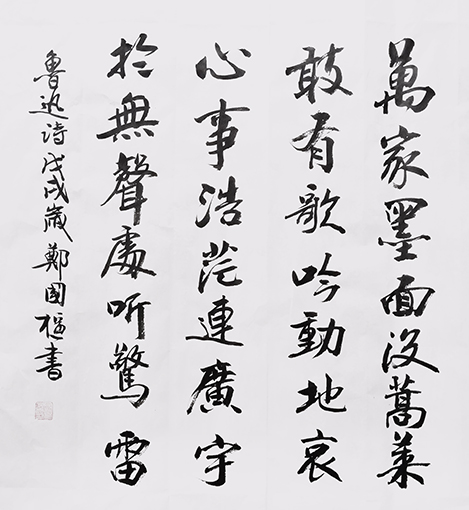 萬家墨面没蒿萊
敢有歌吟動地哀
心事浩茫連廣宇
於無聲處听驚雷
魯迅诗戊戌歲鄭國書